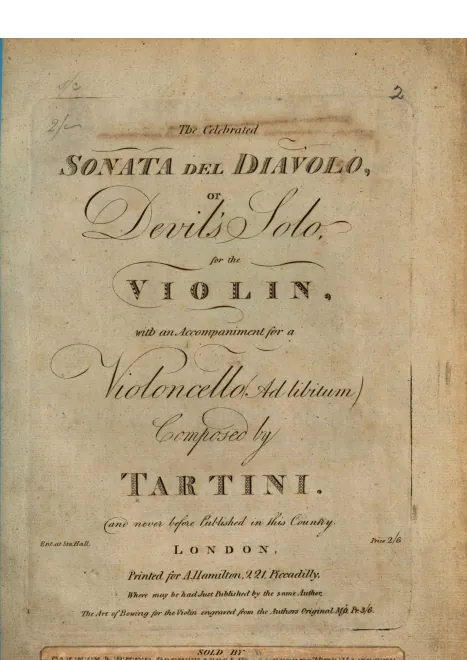 2
2/
The Celebrated
SONATA DEL DIAVOLO,
or
Devil's Solo,
for the
VIOLIN,
with an Accompaniment for a
Violoncello (Ad libitum)
Composed by
TARTINI.
(and never before Published in this Country.
Ent. at Sta. Hall. Price 2/6
LONDON,
Printed for A. Hamilton, 221, Piccadilly.
Where may be had Just Published by the same Author,
The Art of Bowing for the Violin engraved from the Authors Original M.S. Pr. 3/6.
SOLD BY